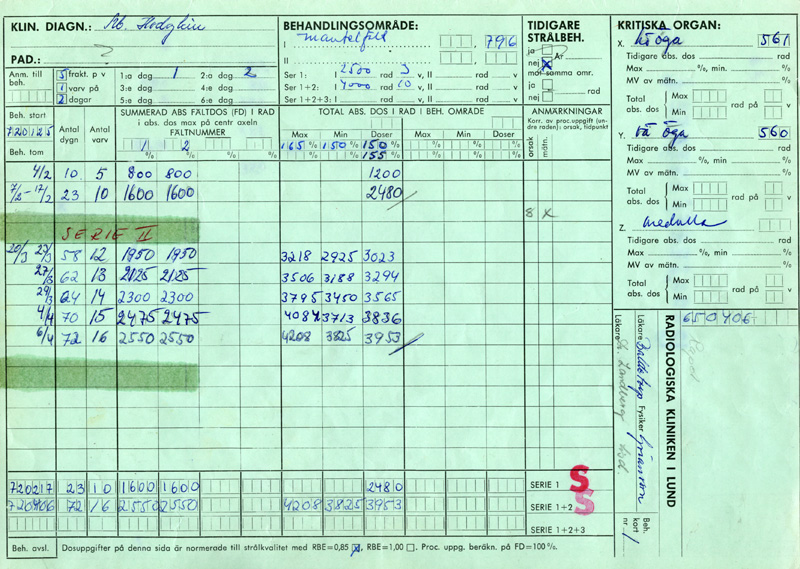 KLIN. DIAGN.: Mb. Hodgkin
PAD.: ?
BEHANDLINGSOMRÅDE:
I mantelfält 796
II
Ser 1: 2500 rad 3 v, II rad v
Ser 1+2: 4000 rad 10 v, II rad v
Ser 1+2+3: rad v, II rad v
TIDIGARE STRÅLBEH.
ja År
nej X
mot samma omr.
ja
nej
KRITISKA ORGAN:
X. hö öga 561
Tidigare abs. dos rad
Max %, min. %
MV av mätn. %
Total abs. dos Max Min rad på v
Y. vä öga 560
Tidigare abs. dos rad
Max %, min %
MV av mätn. %
Total abs. dos Max Min rad på v
Z. medulla
Tidigare abs. dos rad
Max %, min %
MV av mätn. %
Total abs. dos Max Min rad på v
Anm. till beh.
5 frakt. p v
1 varv på
2 dagar
1:a dag 1 2:a dag 2
3:e dag 4:e dag
5:e dag 6:e dag
Beh. start
720125
Beh. tom
Antal dygn
Antal varv
SUMMERAD ABS FÄLTDOS (FD) I RAD
i abs. dos max på centr axeln
FÄLTNUMMER
1 2
% % % %
TOTAL ABS. DOS I RAD I BEH. OMRÅDE
Max Min Doser Max Min Doser
165 % 150 % 150 % % % %
155
ANMÄRKNINGAR
Korr. av proc.uppgift (under raden): orsak, tidpunkt
orsak
mätn.
4/2 10 5 800 800 1200
7/2-17/2 23 10 1600 1600 2480
8 X
SERIE II
20/3 23/3 58 12 1950 1950 3218 2925 3023
27/3 62 13 2125 2125 3506 3188 3294
29/3 64 14 2300 2300 3795 3450 3565
4/4 70 15 2475 2475 4084 3713 3836
6/4 72 16 2550 2550 4208 3825 3953
720217 23 10 1600 1600 2480 SERIE 1 S
720406 72 16 2550 2550 4208 3825 3953 SERIE 1+2 S
SERIE 1+2+3
Beh. avsl.
Dosuppgifter på denna sida är normerade till strålkvalitet med RBE=0,85 X, RBE=1,00 . Proc. uppg. beräkn. på FD=100 %.
650406
RADIOLOGISKA KLINIKEN I LUND
Läkare
Fysiker
Läkare Landberg
Beh. kort nr. 1